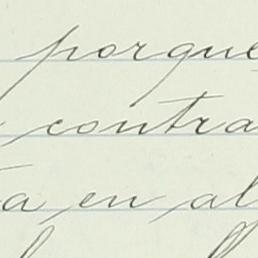 porque
contra
ta en al